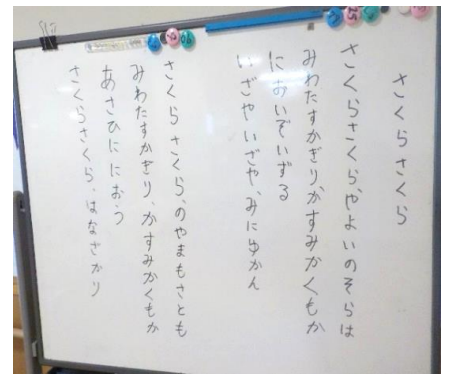 さくらさくら
さくらさくら、やよいのそらは
みわたすかぎり、かすみかくもか
においぞいずる
いざやいざや、みにゆかん
さくらさくら、のやまもさとも
みわたすかぎり、かすみかくもか
あさひににおう
さくらさくら、はなざかり